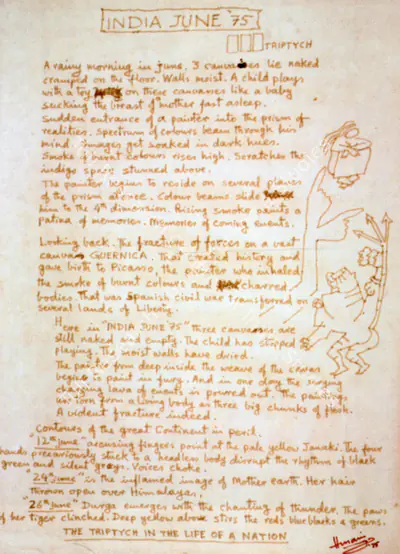 INDIA JUNE '75
TRIPTYCH
A rainy morning in June. 3 canvases lie naked
cramped on the floor. Walls moist. A child plays
with a toy on these canvases like a baby
sucking the breast of mother fast asleep.
Sudden entrance of a painter into the prism of
realities. Spectrum of colours beam through his
mind. Images get soaked in dark hues.
Smoke of burnt colours rises high. Scratches the
indigo space stunned above.
The painter begins to reside on several planes
of the prism at once. Colour beams slide
him in the 4th dimension. Rising smoke paints a
patina of memories. Memories of coming events.
Looking back. The fracture of forces on a vast
canvas GUERNICA. That created history and
gave birth to Picasso, the painter who inhaled
the smoke of burnt colours and charred
bodies. That was Spanish civil war transferred on
several lands of Liberty.
Here in "INDIA JUNE 75" three canvases are
still naked and empty. The child has stopped
playing. The moist walls have dried.
The painter from deep inside the weave of the canvas
begins to paint in fury. And in one day the surging
changing lava of events is poured out. The paintings
are torn from a living body as three big chunks of flesh.
A violent fracture indeed.
Contours of the great Continent in peril.
"12th June" accusing fingers point at the pale yellow Janaki. The four
hands precariously stuck to a headless body disrupt the rhythm of black
green and silent greys. Voices choke.
"24th June" is the inflamed image of Mother earth. Her hair
thrown open over Himalayas.
"26th June" Durga emerges with the chanting of thunder. The paws
of her tiger clinched. Deep yellow above stirs the reds blue blacks & greens.
THE TRIPTYCH IN THE LIFE OF A NATION
Husain
75